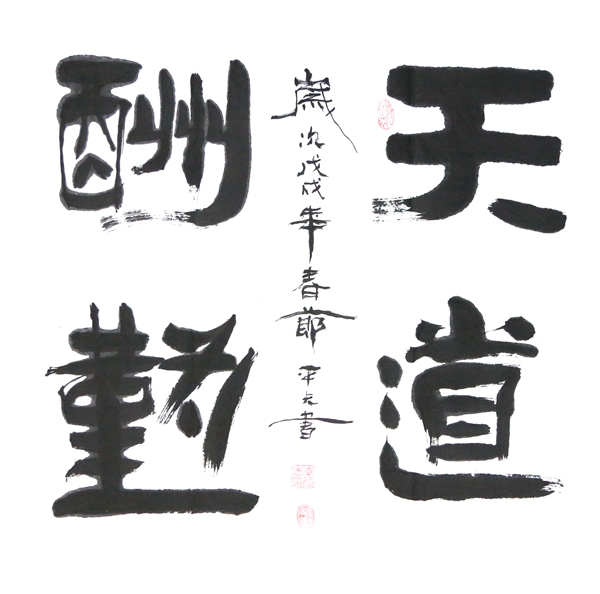 天道
歲次戊戌年春節平元書
酬勤